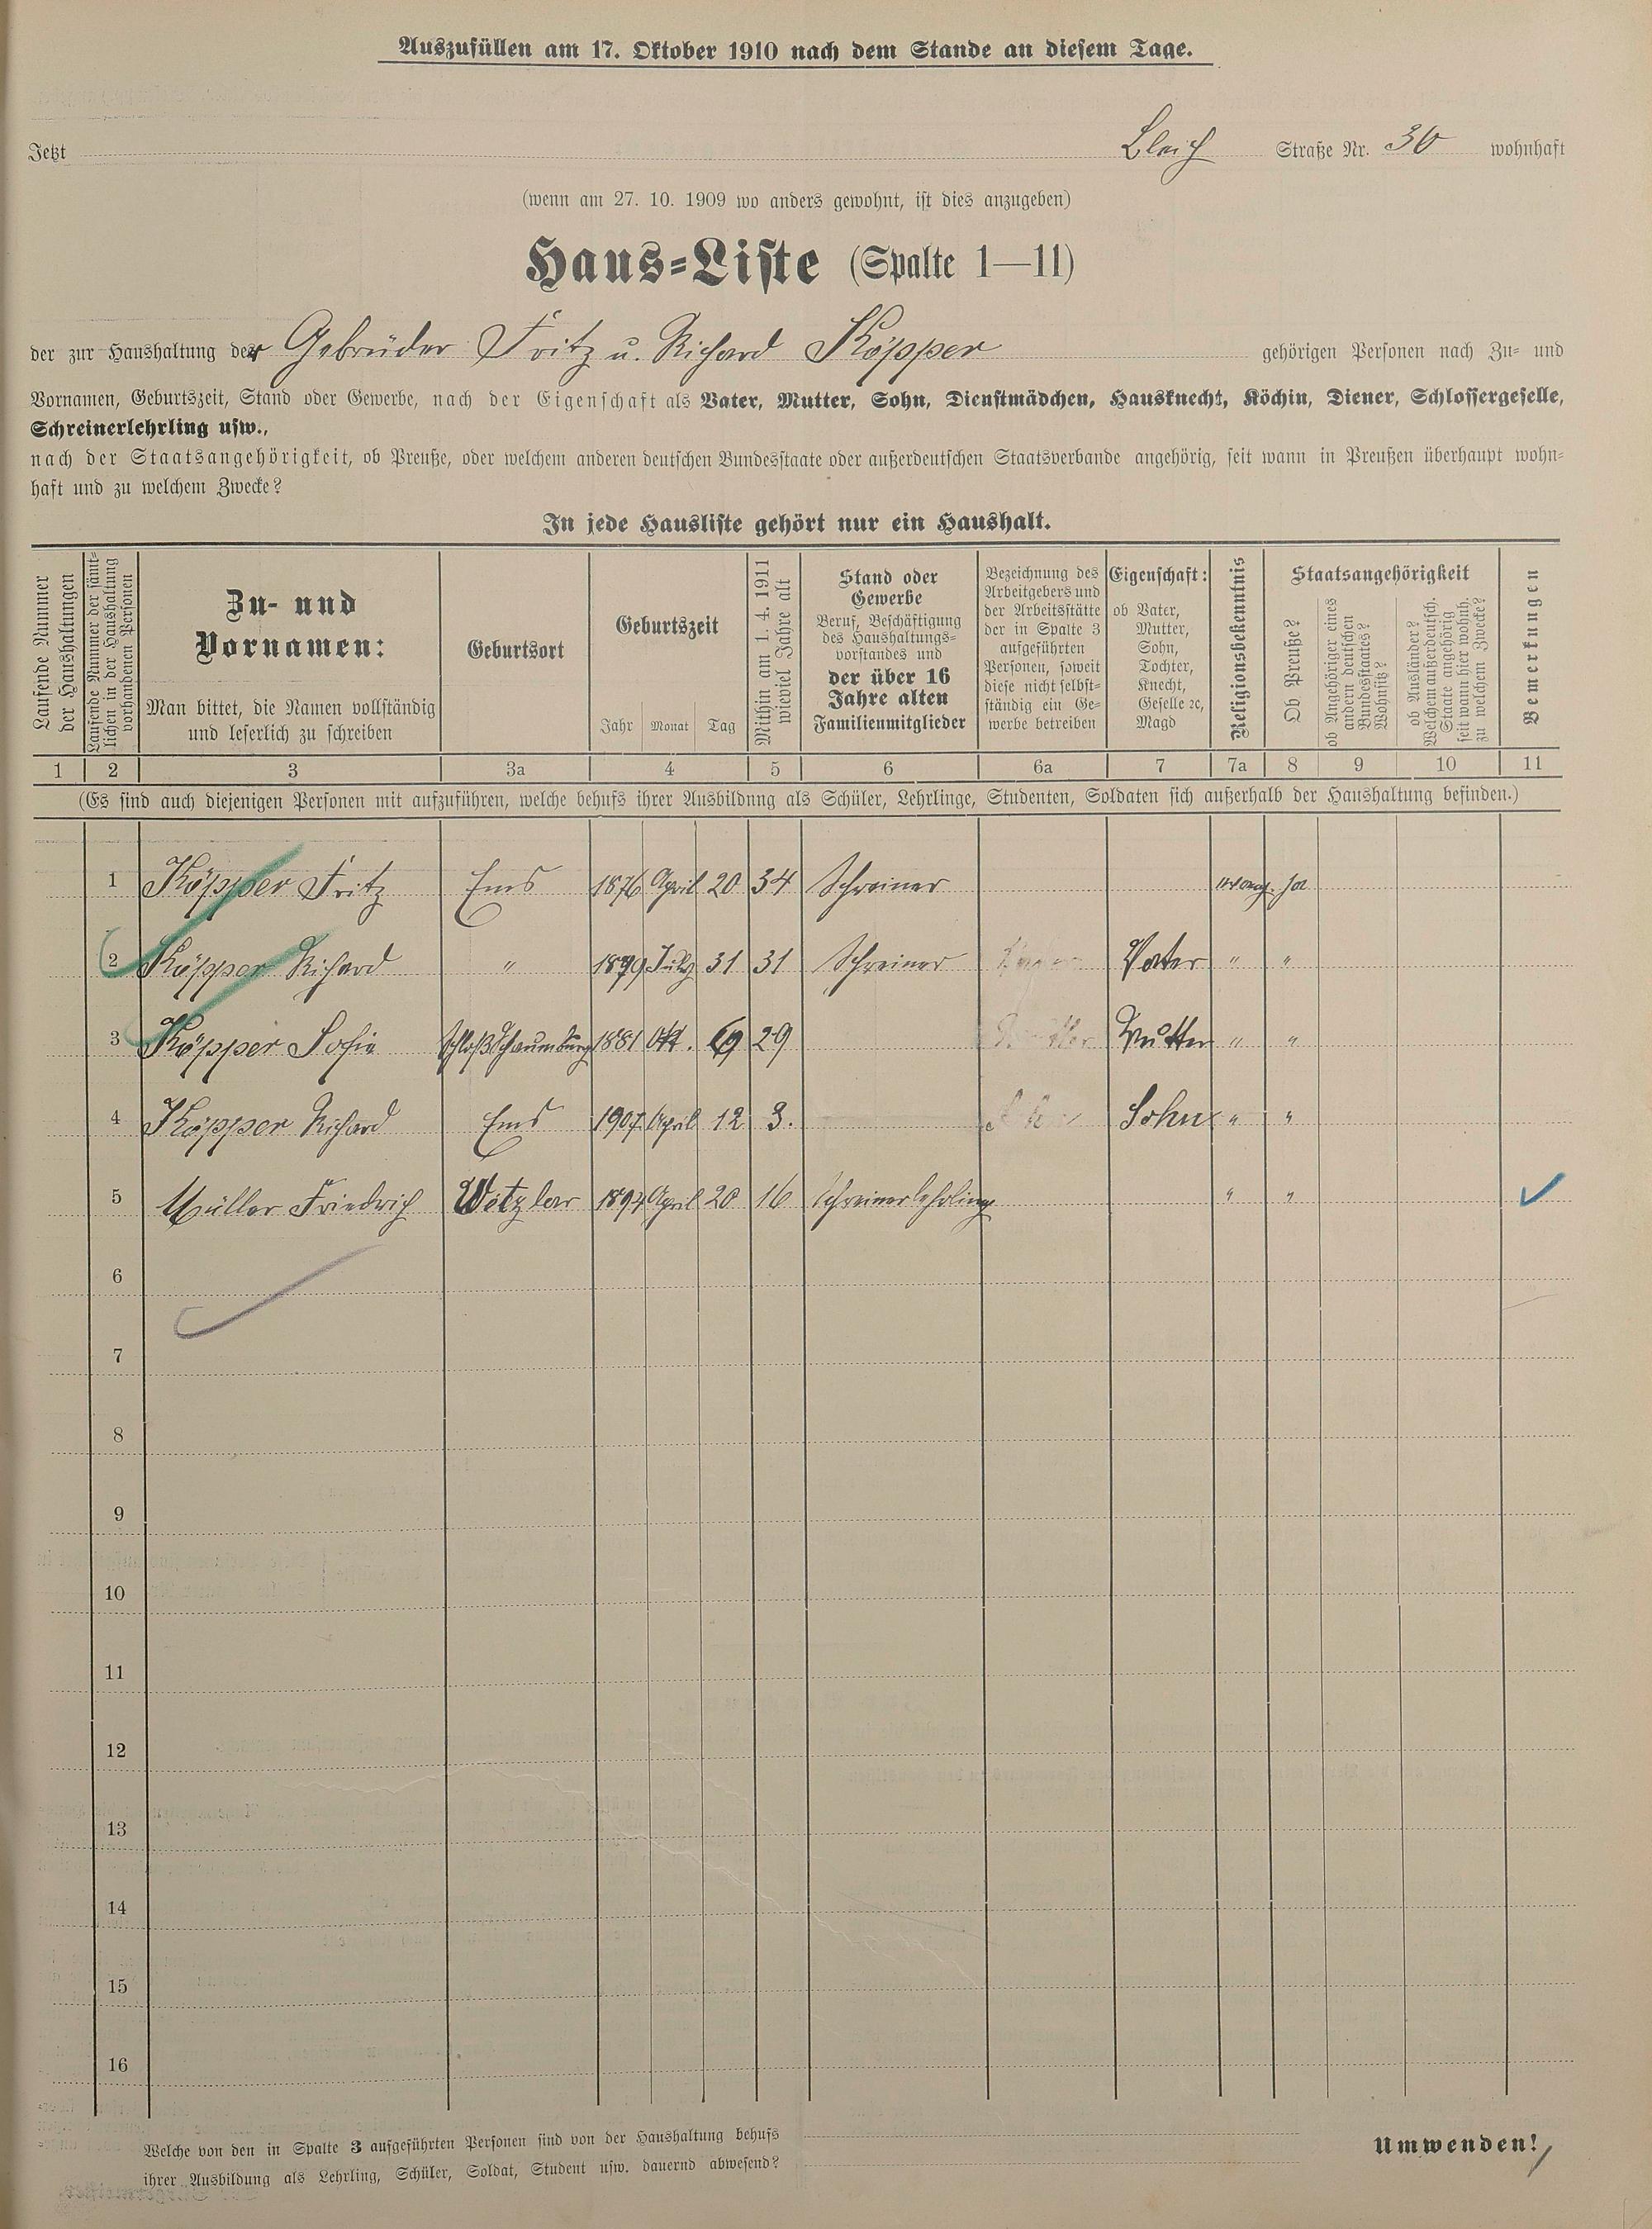 Auszufüllen am 17. Oktober 1910 nach dem Stande an diesem Tage.
Jetzt Bleich Straße Nr. 30 wohnhaft
(wenn am 27. 10. 1909 wo anders gewohnt, ist dies anzugeben)
Haus-Liste (Spalte 1—11)
der zur Haushaltung der Gebrüder Fritz u. Richard Köpper gehörigen Personen nach Zu- und
Vornamen, Geburtszeit, Stand oder Gewerbe, nach der Eigenschaft als Vater, Mutter, Sohn, Dienstmädchen, Hausknecht, Köchin, Diener, Schlossergeselle,
Schreinerlehrling usw.,
nach der Staatsangehörigkeit, ob Preuße, oder welchem anderen deutschen Bundesstaate oder außerdeutschen Staatsverbande angehörig, seit wann in Preußen überhaupt wohn-
haft und zu welchem Zwecke?
In jede Hausliste gehört nur ein Haushalt.
Laufende Nummer
der Haushaltungen
Laufende Nummer der sämt-
lichen in der Haushaltung
vorhandenen Personen
Zu- und
Vornamen:
Man bittet, die Namen vollständig
und leserlich zu schreiben
Geburtsort
Geburtszeit
Jahr Monat Tag
Mithin am 1. 4. 1911
wieviel Jahre alt
Stand oder
Gewerbe
Beruf, Beschäftigung
des Haushaltungs-
vorstandes und
der über 16
Jahre alten
Familienmitglieder
Bezeichnung des
Arbeitgebers und
der Arbeitsstätte
der in Spalte 3
aufgeführten
Personen, soweit
diese nicht selbst-
ständig ein Ge-
werbe betreiben
Eigenschaft:
ob Vater,
Mutter,
Sohn,
Tochter,
Knecht,
Geselle ꝛc,
Magd
Religionsbekenntnis
Staatsangehörigkeit
Ob Preuße?
ob Angehöriger eines
andern deutschen
Bundesstaates?
Wohnsitz?
ob Ausländer?
Welchem außerdeutsch.
Staate angehörig
seit wann hier wohnh.
zu welchem Zwecke?
Bemerkungen
1 2 3 3a 4 5 6 6a 7 7a 8 9 10 11
(Es sind auch diejenigen Personen mit aufzuführen, welche behufs ihrer Ausbildung als Schüler, Lehrlinge, Studenten, Soldaten sich außerhalb der Haushaltung befinden.)
1 Köpper Fritz Ems 1876 April 20 34 Schreiner evang. ja
2 Köpper Richard " 1879 July 31 31 Schreiner Vater " "
3 Köpper Sofie Schloß Schaumburg 1881 Okt. 29 Mutter " "
4 Köpper Richard Ems 1907 April 12 3. Sohn " "
5 Müller Friedrich Wetzlar 1894 April 20 16 Schreinerlehrling " "
6
7
8
9
10
11
12
13
14
15
16
Welche von den in Spalte 3 aufgeführten Personen sind von der Haushaltung behufs
ihrer Ausbildung als Lehrling, Schüler, Soldat, Student usw. dauernd abwesend?
Umwenden!